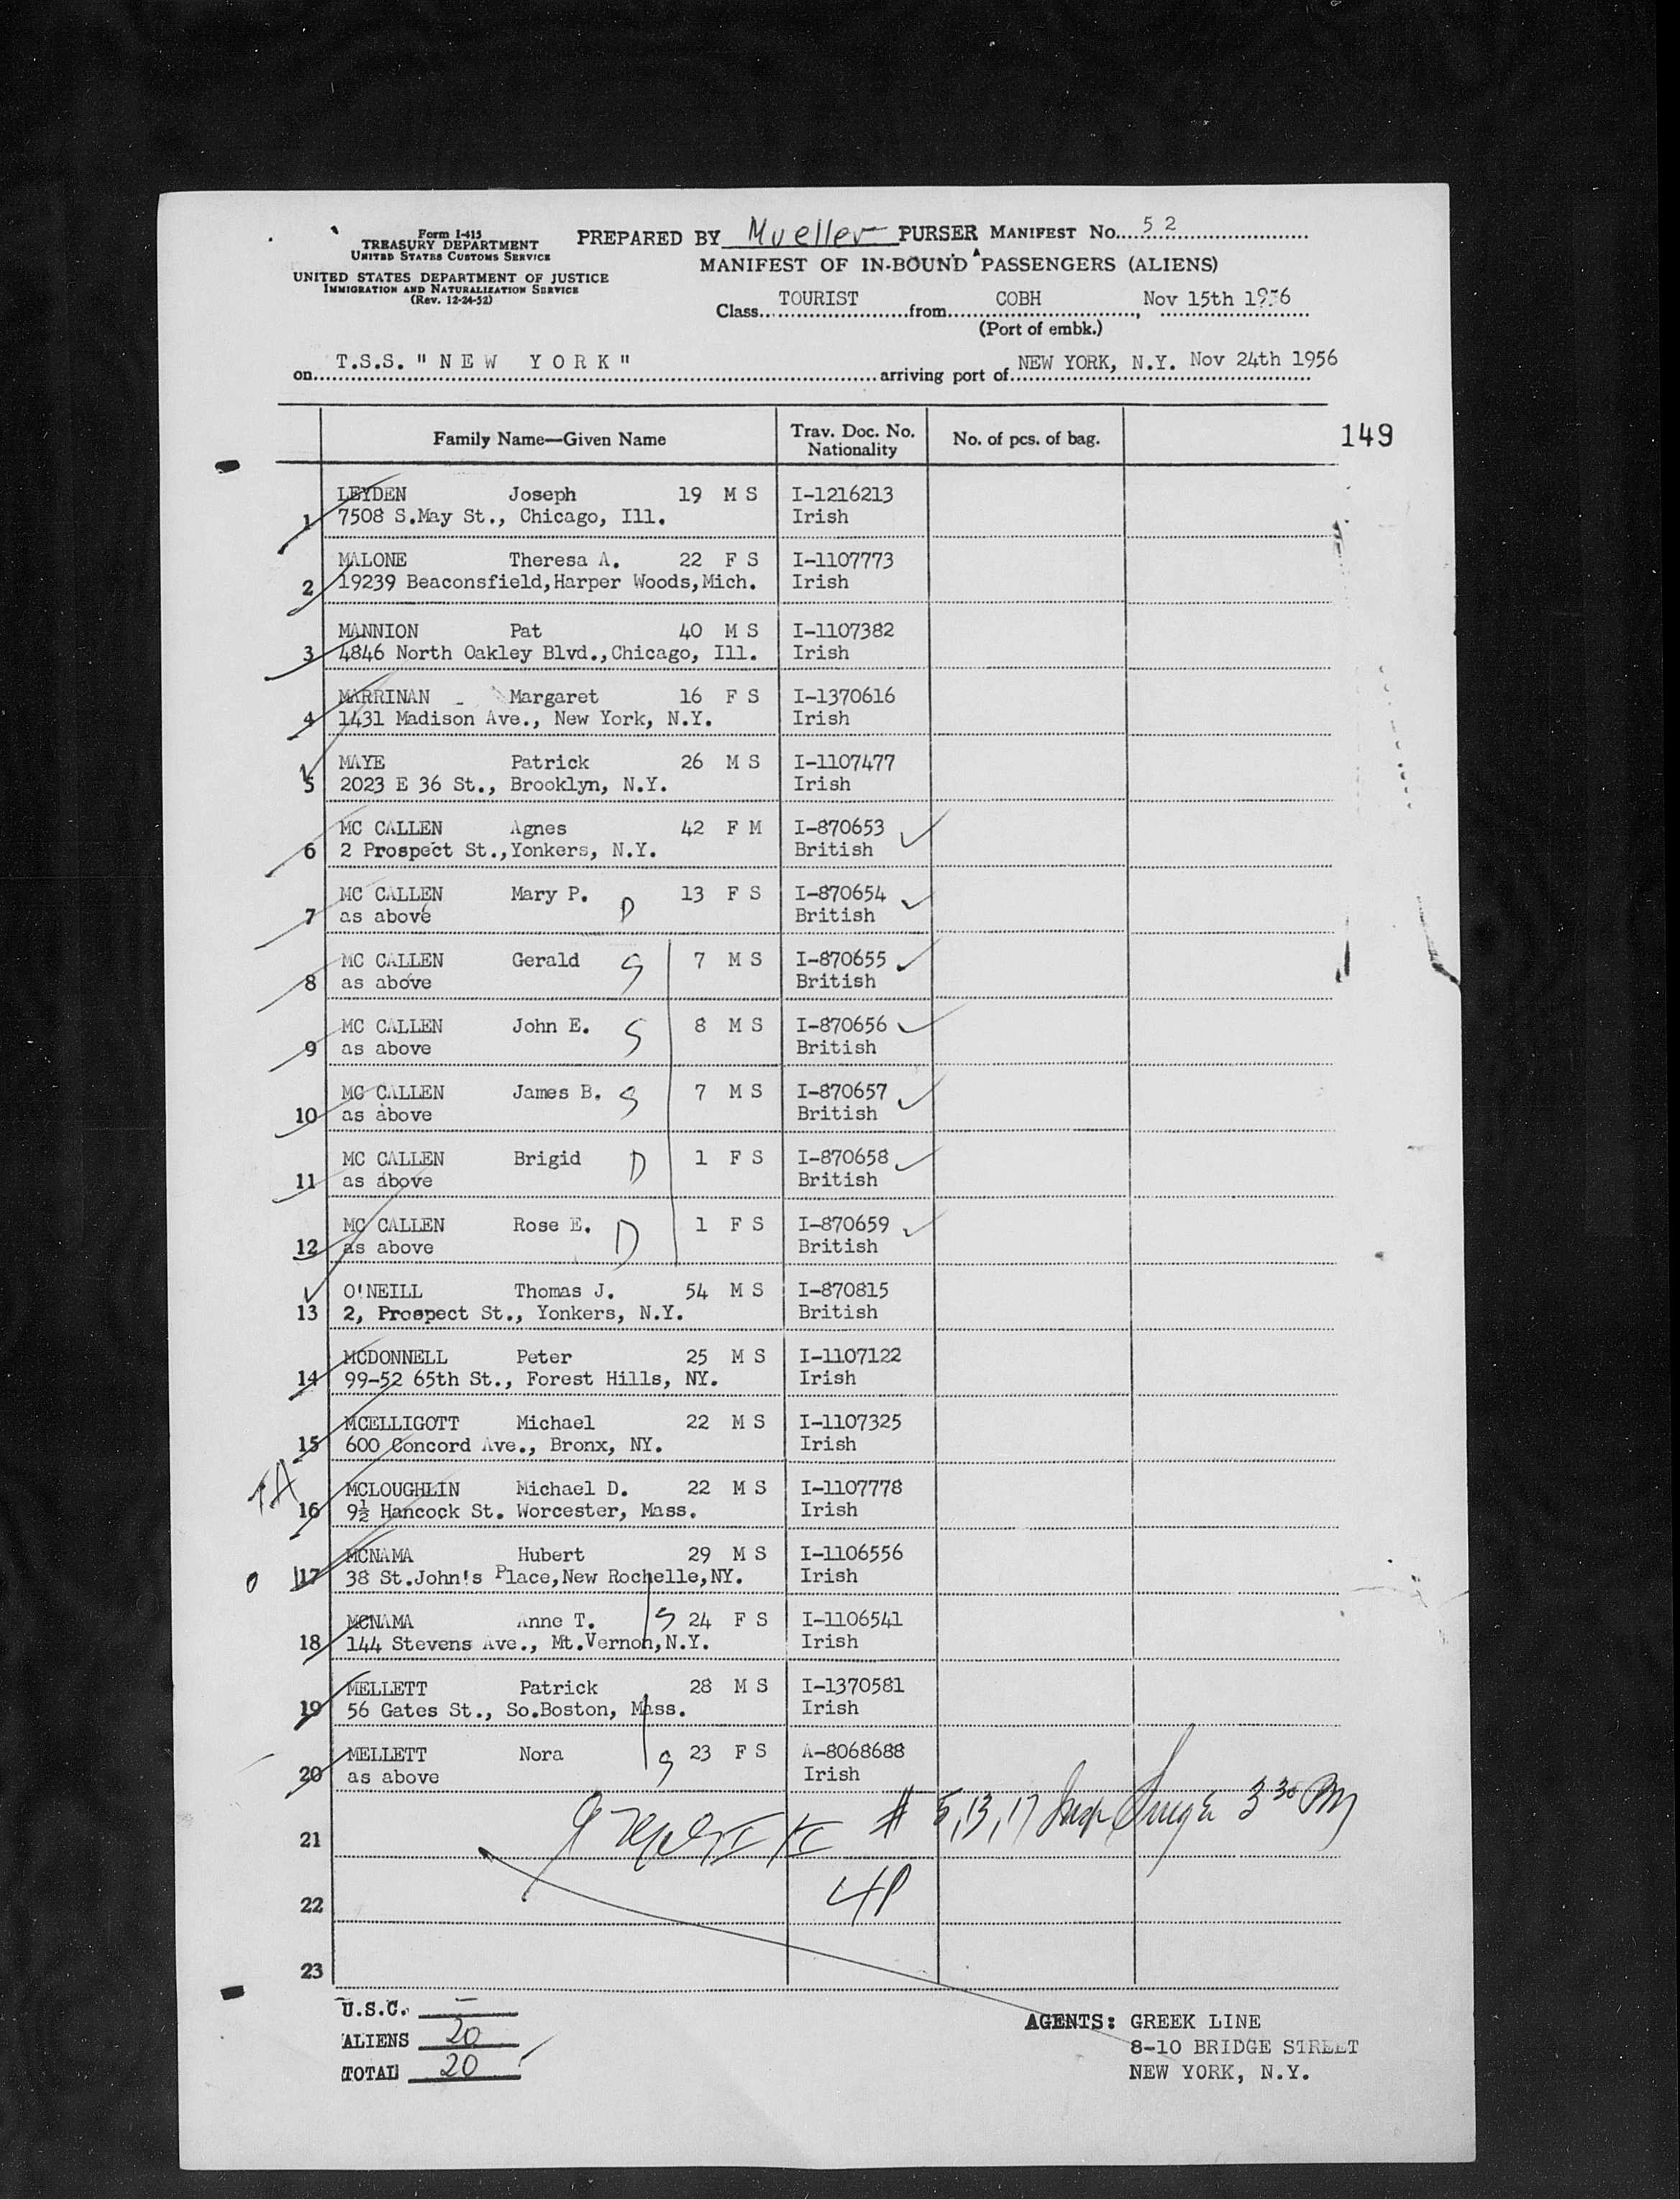 Form I-415
TREASURY DEPARTMENT
UNITED STATES CUSTOMS SERVICE
UNITED STATES DEPARTMENT OF JUSTICE
IMMIGRATION AND NATURALIZATION SERVICE
(Rev. 12-24-52)
PREPARED BY Mueller PURSER MANIFEST No. 52
MANIFEST OF IN-BOUND PASSENGERS (ALIENS)
Class TOURIST from COBH, Nov 15th 1956
(Port of embk.)
on T.S.S. "NEW YORK" arriving port of NEW YORK, N.Y. Nov 24th 1956
Family Name—Given Name Trav. Doc. No. Nationality No. of pcs. of bag. 149
LEYDEN Joseph 19 M S I-1216213
1 7508 S.May St., Chicago, Ill. Irish
MALONE Theresa A. 22 F S I-1107773
2 19239 Beaconsfield,Harper Woods,Mich. Irish
MANNION Pat 40 M S I-1107382
3 4846 North Oakley Blvd.,Chicago, Ill. Irish
MARRINAN Margaret 16 F S I-1370616
4 1431 Madison Ave., New York, N.Y. Irish
MAYE Patrick 26 M S I-1107477
5 2023 E 36 St., Brooklyn, N.Y. Irish
MC CALLEN Agnes 42 F M I-870653
6 2 Prospect St.,Yonkers, N.Y. British
MC CALLEN Mary P. D 13 F S I-870654
7 as above British
MC CALLEN Gerald S 7 M S I-870655
8 as above British
MC CALLEN John E. S 8 M S I-870656
9 as above British
MC CALLEN James B. S 7 M S I-870657
10 as above British
MC CALLEN Brigid D 1 F S I-870658
11 as above British
MC CALLEN Rose E. D 1 F S I-870659
12 as above British
O'NEILL Thomas J. 54 M S I-870815
13 2, Prospect St., Yonkers, N.Y. British
MCDONNELL Peter 25 M S I-1107122
14 99-52 65th St., Forest Hills, NY. Irish
MCELLIGOTT Michael 22 M S I-1107325
15 600 Concord Ave., Bronx, NY. Irish
TA MCLOUGHLIN Michael D. 22 M S I-1107778
16 9½ Hancock St. Worcester, Mass. Irish
MCNAMA Hubert 29 M S I-1106556
0 17 38 St.John's Place,New Rochelle,NY. Irish
MCNAMA Anne T. S 24 F S I-1106541
18 144 Stevens Ave., Mt.Vernon,N.Y. Irish
MELLETT Patrick 28 M S I-1370581
19 56 Gates St., So.Boston, Mass. Irish
MELLETT Nora S 23 F S A-8068688
20 as above Irish
21 # 5,13,17 3 30 PM
22 4P
23
U.S.C. –
ALIENS 20
TOTAL 20
AGENTS: GREEK LINE
8-10 BRIDGE STREET
NEW YORK, N.Y.